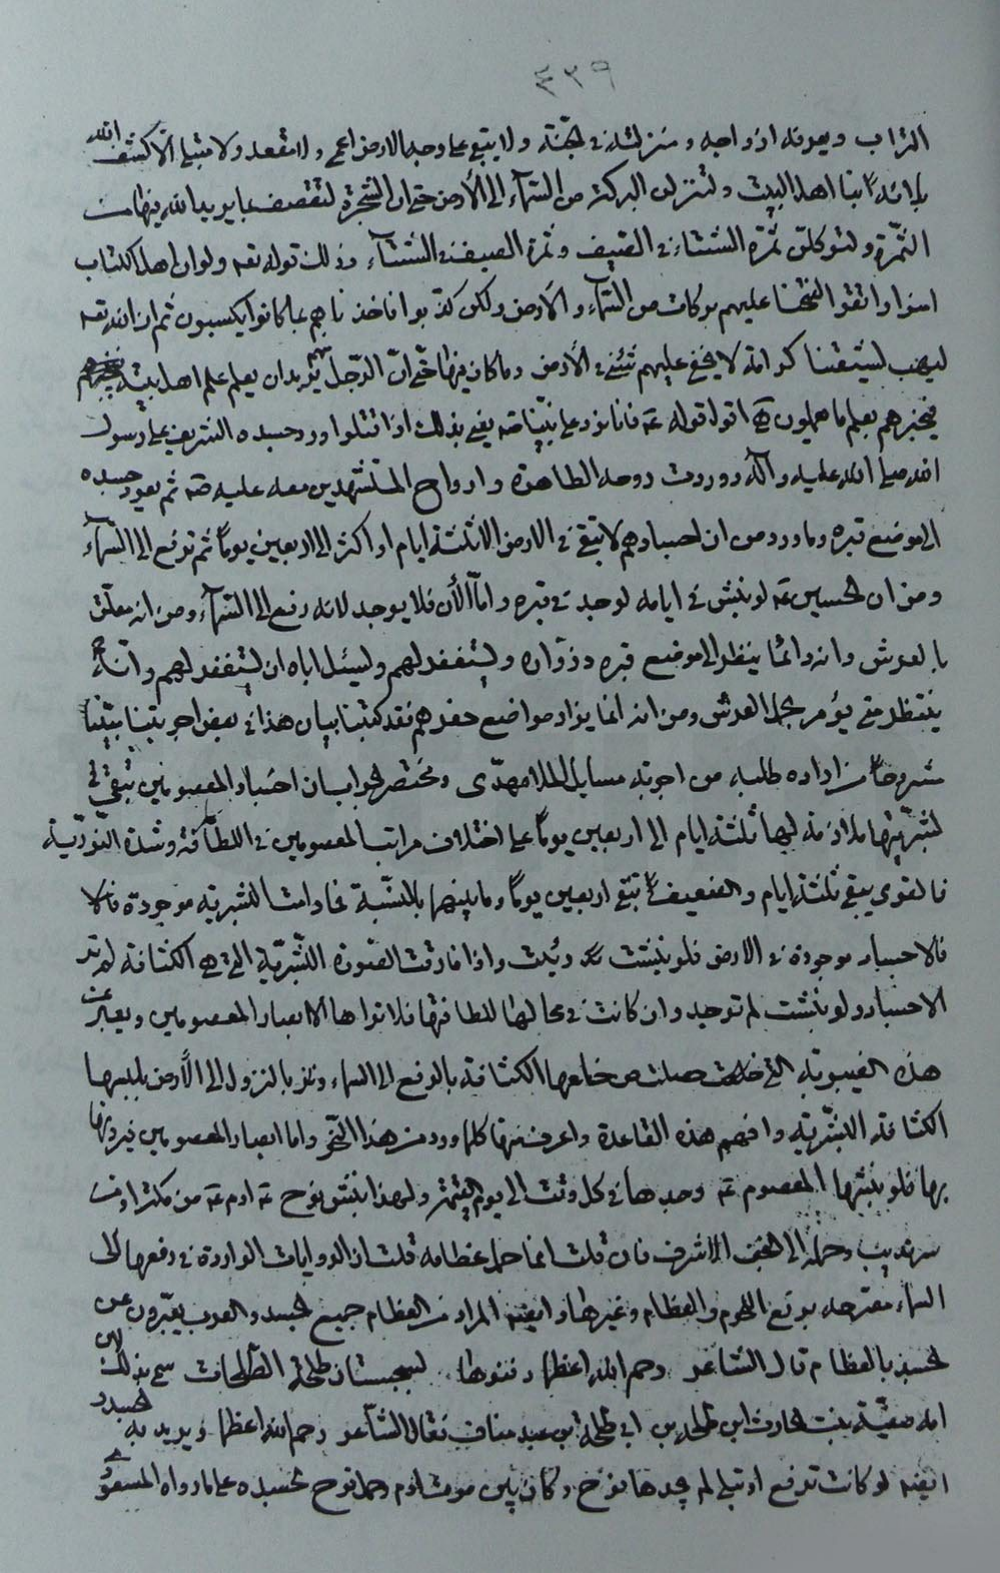 ٤٢٩
التراب ويعرفه ازواجه ومنزلته في الجنة ولا يبقى على وجه الارض اعمى ولا مقعد ولا مبتلى الا كشف الله
بلائه بنا اهل البيت ولتنزلن البركة من السماء الى الأرض حتى ان الشجرة لتقصف بما يريد الله فيها من
الثمرة ولتوكلن ثمرة الشتاء في الصيف وثمرة الصيف في الشتاء وذلك قوله تعه ولو ان اهل الكتاب
امنوا واتقوا لفتحنا عليهم بركات من السماء والأرض ولكن كذبوا فاخذناهم بما كانوا يكسبون ثم ان الله تعه
ليهب لشيعتنا كرامة لا يخفى عليهم شئ في الأرض وما كان فيها حتى ان الرجل منهم يريد ان يعلم علم اهل بيته
فيخبرهم بعلم ما يعملون اقول قوله ع فانا نرد على نبينا صه يعني بذلك اذا قتلوا ورد جسده الشريف على رسول
الله صلى الله عليه وآله وردت روحه الطاهرة وارواح المستشهدين معه عليه صه ثم يعود جسده
الى موضع قبره وما ورد من ان اجسادهم لا تبقى في الارض الا ثلثة ايام او اكثر الى اربعين يوما ثم ترفع الى السماء
ومن ان الحسين ع لو نبش في ايامه لوجد في قبره واما الآن فلا يوجد لانه رفع الى السماء ومن انه معلق
بالعرش وانه دائما ينظر الى موضع قبره وزواره ويستغفر لهم ويسئل اباه ان يستغفر لهم وانه
ينتظر متى يؤمر بحمل العرش ومن انه انما يزار مواضع حفرهم فقد كتبنا بيان هذا في بعض اجوبتنا مبينا
مشروحا من اراده طلبه من اجوبة مسايل الملا مهدى ومختصر الجواب ان اجساد المعصومين تبقى في
بشريتها ملازمة لها ثلثة ايام الى اربعين يوما على اختلاف مراتب المعصومين في اللطافة وشدة النورية
فالقوى يبقى ثلثة ايام والضعيف تبقى اربعين يوما وما بينهما بالنسبة فما دامت البشرية موجودة فالا
فالاجساد موجودة في الارض فلو نبشت رئيت واذا فارقت الصورة البشرية التي هي الكثافة لم تر
الاجساد ولو نبشت لم توجد وان كانت في محالها للطافتها فلا تراها الا ابصار المعصومين ويعبر عن
هذه الغيبوبة التي حصلت من خلعها الكثافة بالرفع الى السماء وعن بالنزول الى الأرض بلبسها
الكثافة البشرية وافهم هذه القاعدة واعرف منها كلما ورد من هذا النحو واما ابصار المعصومين فيرونها
بها فلو نبشها المعصوم ع وجدها في كل وقت الى يوم القيمة ولهذا نبش نوح ع ادم ع من مكة او من
سرنديب وحمله الى النجف الاشرف فان قلت انما حمل عظامه قلت ان الروايات الواردة في رفعها الى
السماء مصرحة برفع اللحوم والعظام وغيرها وايضه المراد من العظام جميع الجسد والعرب يعبرون عن
الجسد بالعظام قال الشاعر رحم الله اعظما دفنوها بسجستان طلحة الطلحات سمي بذلك لان
امه صفية بنت الحارث ابن طلحة بن ابي طلحة بن عبد مناف فقال الشاعر رحم الله اعظما ويريد به الجسد و
ايضه لو كانت ترفع او تبلى لم يجدها نوح وكان بين موت ادم وحمل نوح لجسده على ما رواه المسعودي